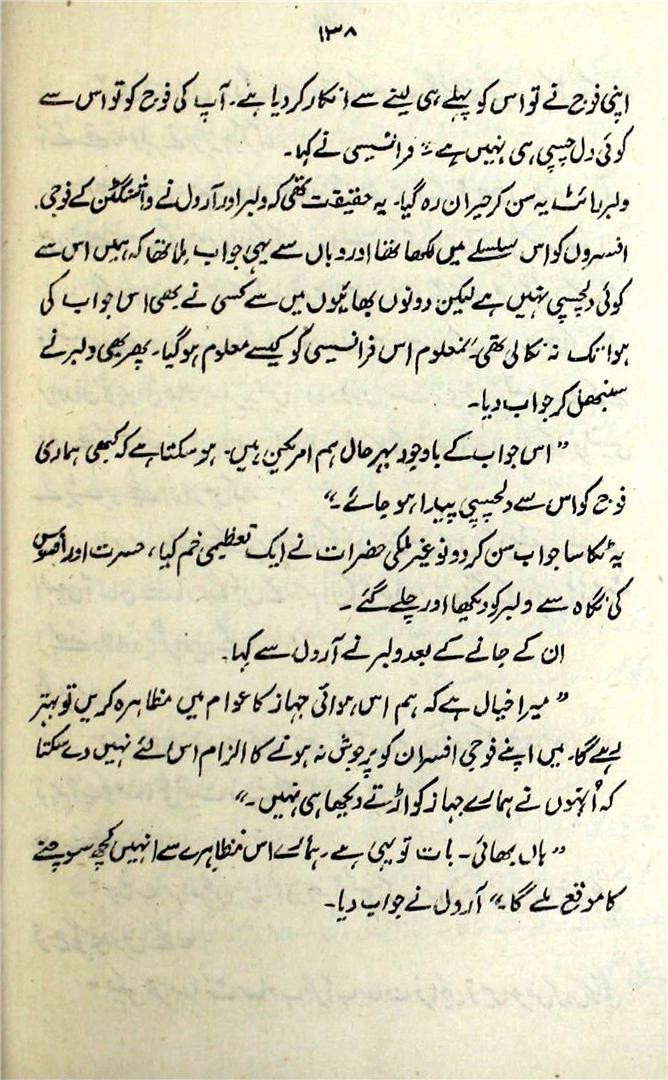 ۱۳۸
اپنی فوج نے تو اس کو پہلے ہی لینے سے انکار کر دیا ہے۔ آپ کی فوج کو تو اس سے
کوئی دل چسپی ہی نہیں ہے۔“ فرانسیسی نے کہا۔
ولبر رائٹ یہ سن کر حیران رہ گیا۔ یہ حقیقت تھی کہ ولبر اور آرول نے واشنگٹن کے فوجی
افسروں کو اس سلسلے میں لکھا تھا اور وہاں سے یہی جواب ملا تھا کہ ہمیں اس سے
کوئی دلچسپی نہیں ہے لیکن دونوں بھائیوں میں سے کسی نے بھی اس جواب کی
ہوا تک نہ نکالی تھی۔ نمعلوم اس فرانسیسی کو کیسے معلوم ہو گیا۔ پھر بھی ولبر نے
سنبھل کر جواب دیا۔
”اس جواب کے باوجود بہرحال ہم امریکین ہیں۔ ہو سکتا ہے کہ کبھی ہماری
فوج کو اس سے دلچسپی پیدا ہو جائے۔“
یہ ٹکا سا جواب سن کر دونو غیر ملکی حضرات نے ایک تعظیمی خم کیا، حسرت اور افسوس
کی نگاہ سے ولبر کو دیکھا اور چلے گئے۔
ان کے جانے کے بعد ولبر نے آرول سے کہا۔
”میرا خیال ہے کہ ہم اس ہوائی جہاز کا عوام میں مظاہرہ کریں تو بہتر
رہے گا۔ میں اپنے فوجی افسران کو پرجوش نہ ہونے کا الزام اس لئے نہیں دے سکتا
کہ اُنہوں نے ہمارے جہاز کو اڑتے دیکھا ہی نہیں۔“
”ہاں بھائی۔ بات تو یہی ہے۔ ہمارے اس مظاہرے سے انہیں کچھ سوچنے
کا موقع ملے گا۔“ آرول نے جواب دیا۔